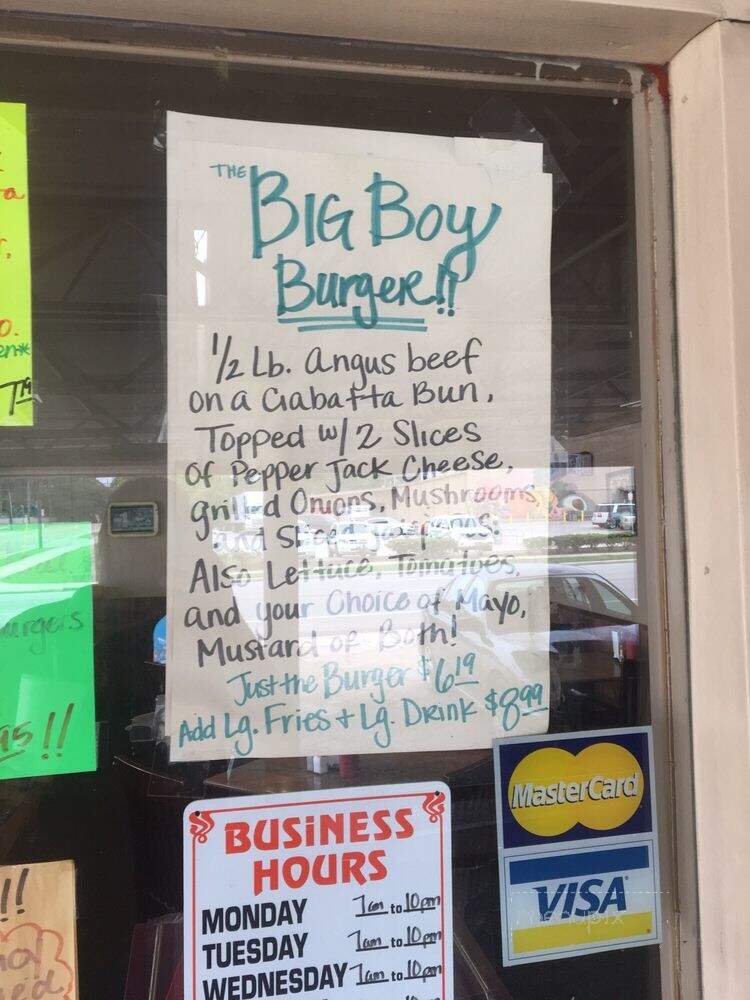 THE
BIG BOY
BURGER!!
1/2 Lb. Angus beef
on a Ciabatta Bun,
Topped w/ 2 Slices
Of Pepper Jack Cheese,
grilled Onions, Mushrooms,
and Sliced Jalapenos.
Also Lettuce, Tomatoes,
and your Choice of Mayo,
Mustard or Both!
Just the Burger $6.19
Add Lg. Fries + Lg. Drink $8.99
MasterCard
VISA
BUSINESS
HOURS
MONDAY 7am to 10pm
TUESDAY 7am to 10pm
WEDNESDAY 7am to 10pm